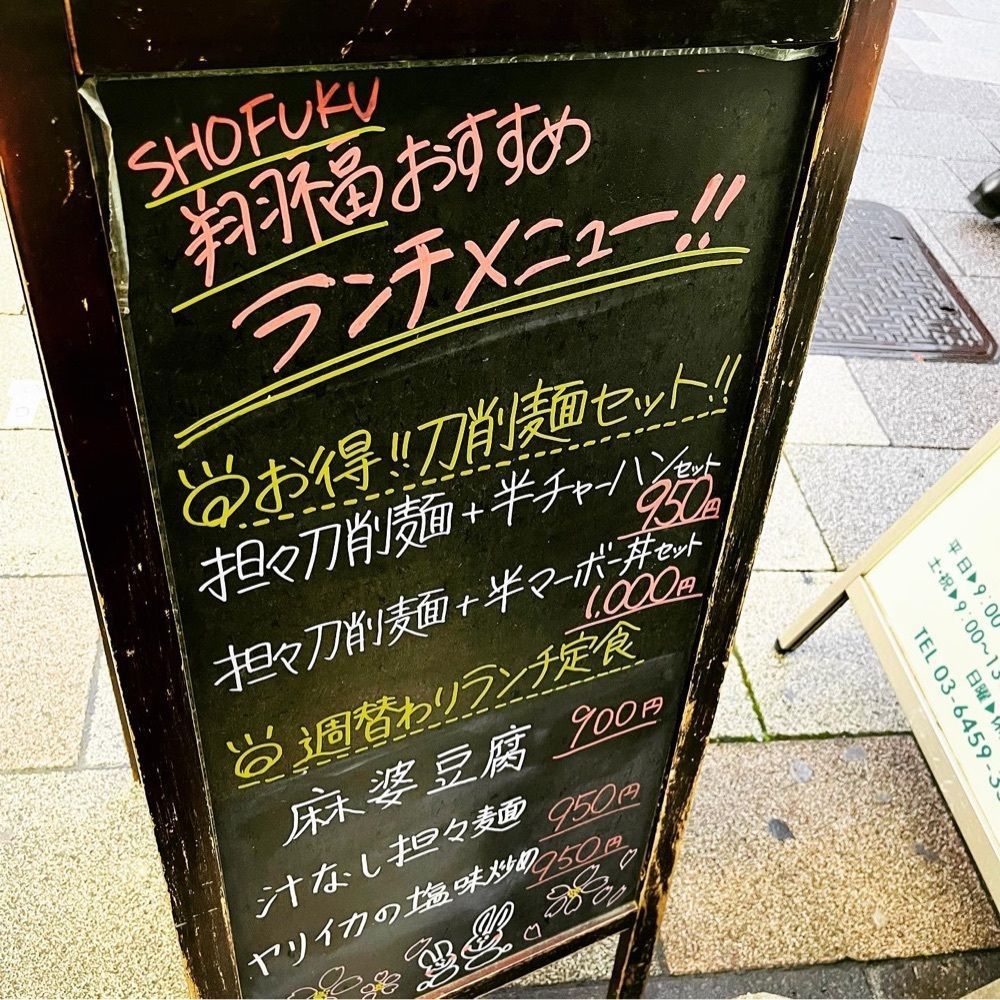 SHOFUKU
翔福おすすめ
ランチメニュー!!
お得!!刀削麺セット!!
担々刀削麺+半チャーハンセット
950円
担々刀削麺+半マーボー丼セット
1,000円
週替わりランチ定食
麻婆豆腐 900円
汁なし担々麺 950円
ヤリイカの塩味炒め 950円
平日▶9:00
土・祝▶9:00~13
日曜▶
TEL 03-6459-3